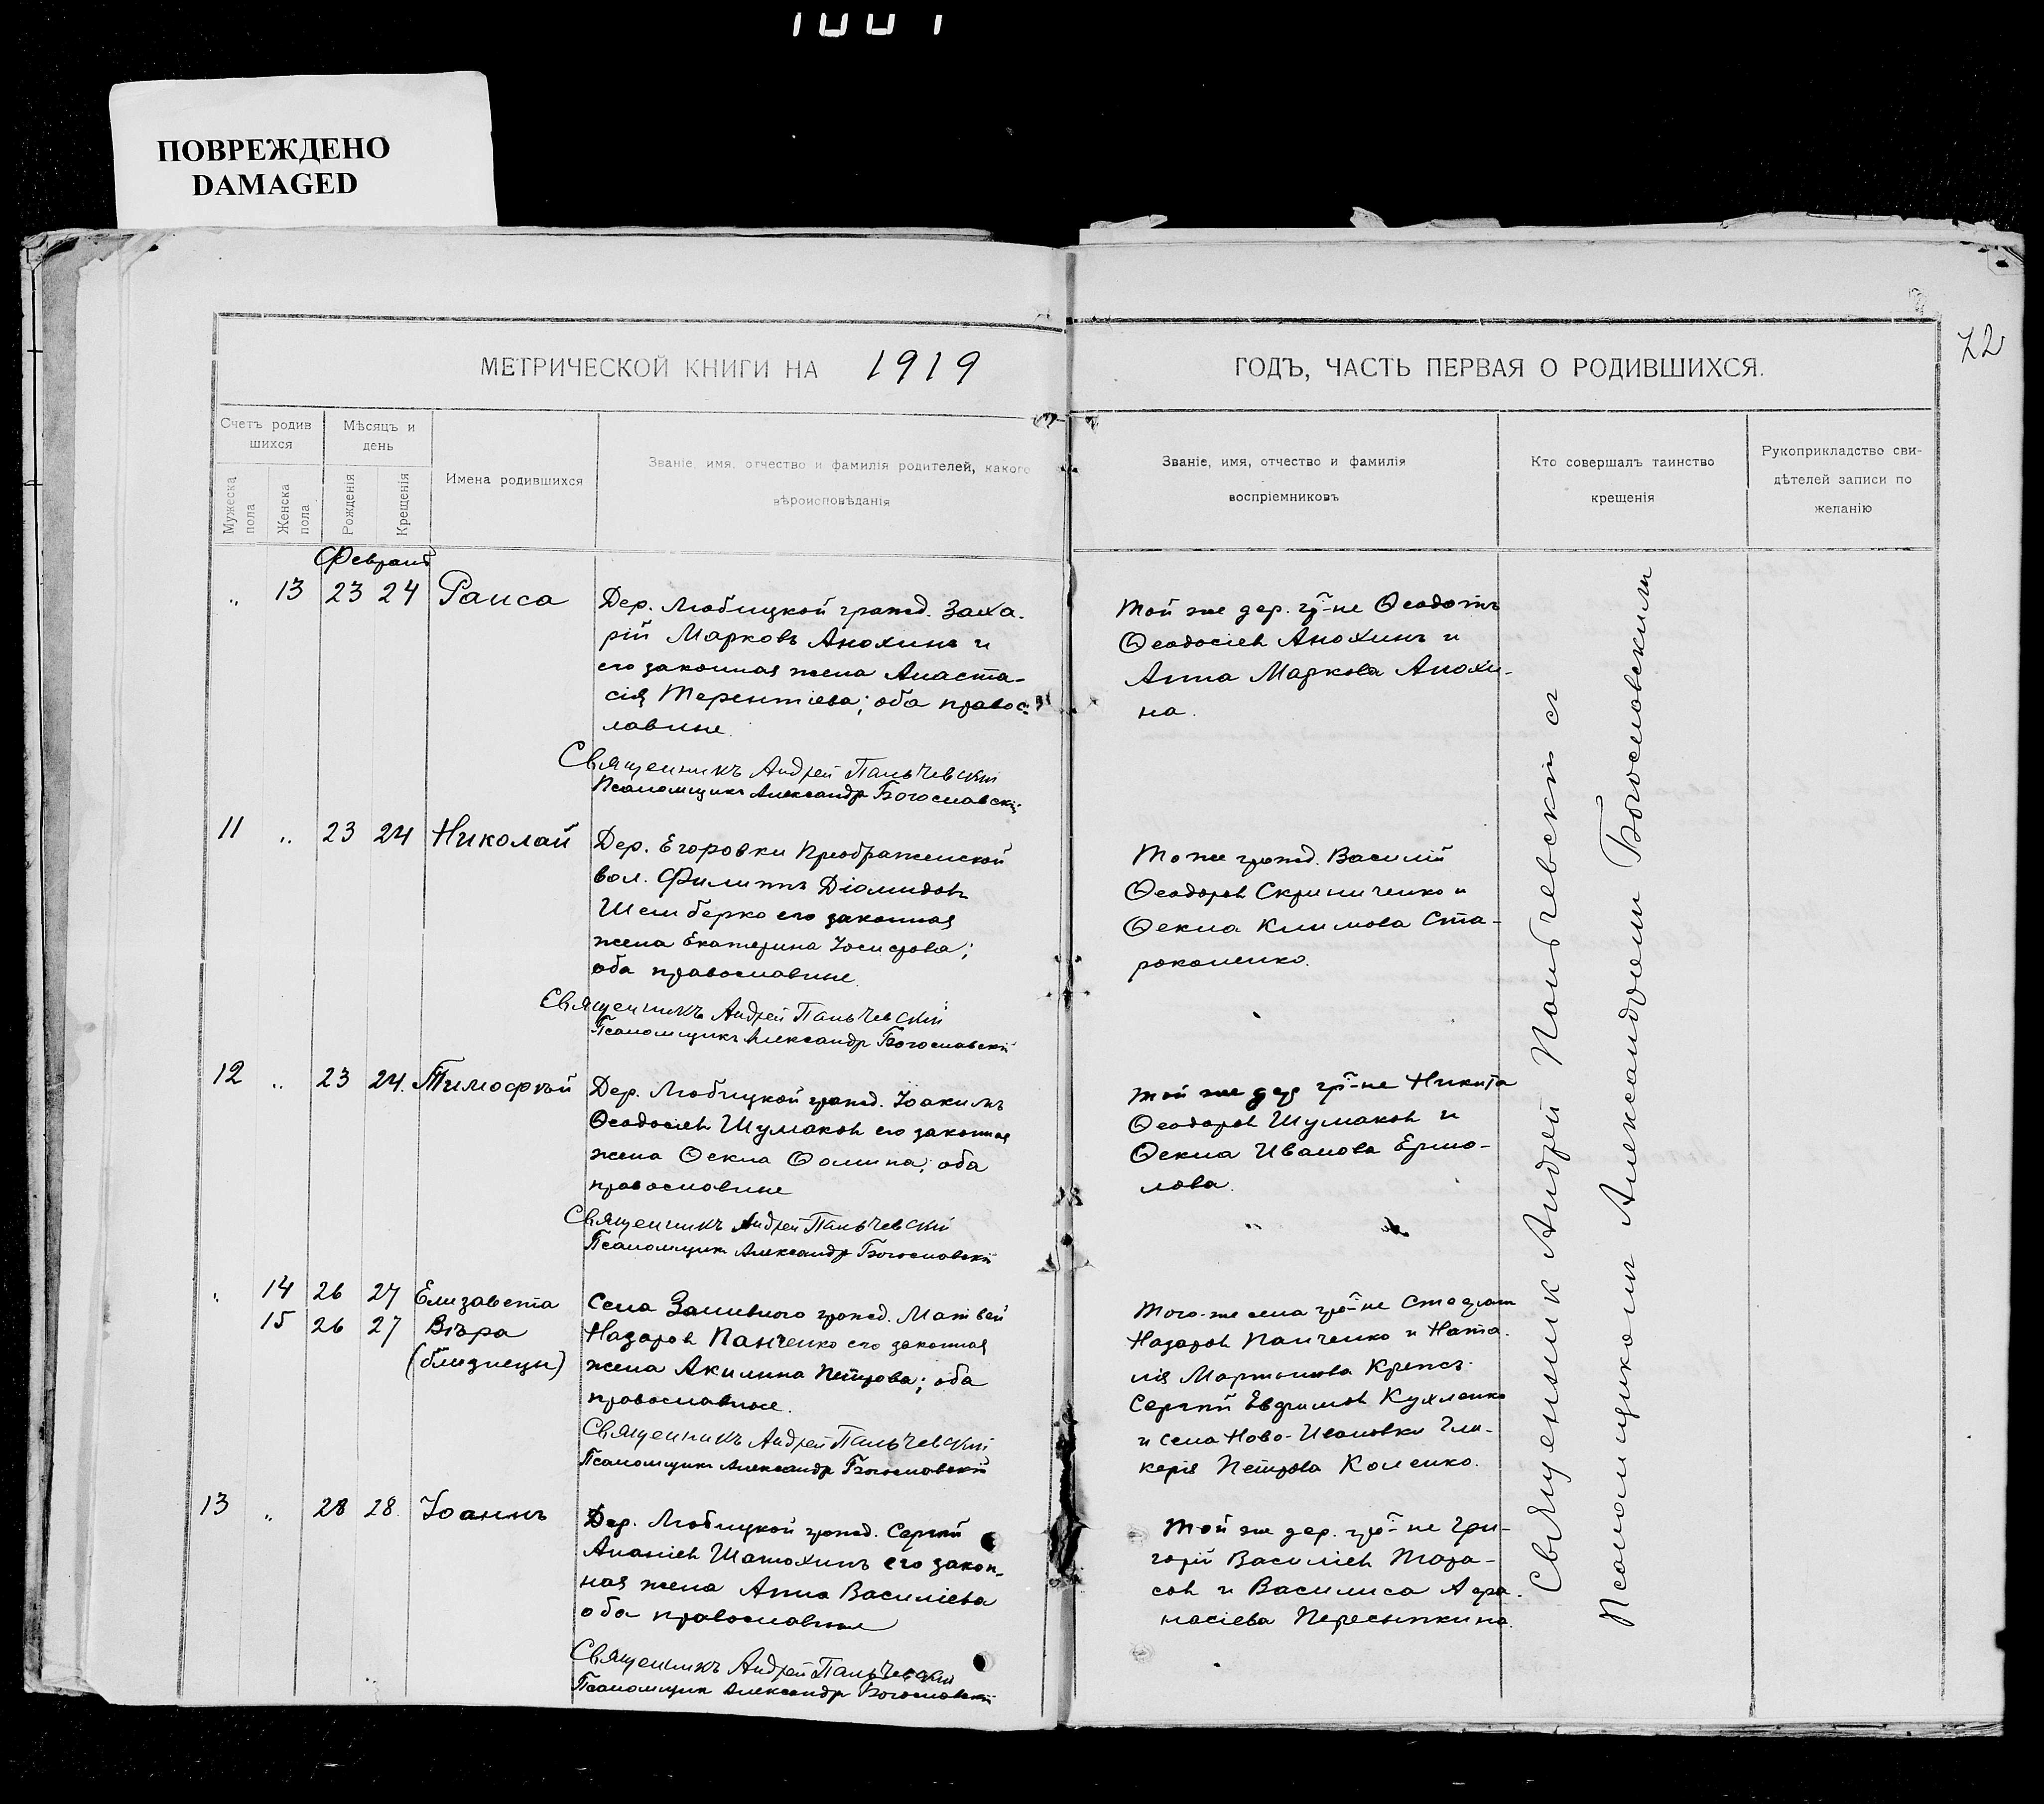 1001
ПОВРЕЖДЕНО
DAMAGED
72
МЕТРИЧЕСКОЙ КНИГИ НА 1919 ГОДЪ, ЧАСТЬ ПЕРВАЯ О РОДИВШИХСЯ.
Счетъ родив
шихся
Мужеска
пола
Женска
пола
Мѣсяцъ и
день
Рожденія
Крещенія
Имена родившихся
Званіе, имя, отчество и фамилія родителей, какого
вѣроисповѣданія
Званіе, имя, отчество и фамилія
воспріемниковъ
Кто совершалъ таинство
крещенія
Рукоприкладство сви-
дѣтелей записи по
желанію
Февраль
„ 13 23 24 Раиса
Дер. Любицкой гражд. Заха-
рій Марковъ Анохинъ и
его законная жена Анаста-
сія Терентіева; оба правос-
лавные.
Священникъ Андрей Пальчевскій
Псаломщикъ Александр Богословскій
Той же дер. гр-не Ѳеодотъ
Ѳеодосіев Анохинъ и
Анна Маркова Анохи-
на.
11 „ 23 24 Николай
Дер. Егоровки Преображенской
вол. Филиппъ Діомидовъ
Шемберко его законная
жена Екатерина Іосифова;
оба православные.
Священникъ Андрей Пальчевскій
Псаломщикъ Александр Богословскій
То же гражд. Василій
Ѳеодоров Скриниченко и
Ѳекла Климова Ста-
роконенко.
12 „ 23 24. Тимофѣй
Дер. Любицкой гражд. Іоакимъ
Ѳеодосіев Шумаков его законная
жена Ѳекла Ѳомина; оба
православные
Священникъ Андрей Пальчевскій
Псаломщикъ Александр Богословскій
Той же дер гр-не Никита
Ѳеодоров Шумаков и
Ѳекла Иванова Ермо-
лова.
„ 14 26 27 Елизавета
15 26 27 Вѣра
(близнецы)
Села Заливного гражд. Матвей
Назаров Панченко его законная
жена Акилина Петрова; оба
православные.
Священникъ Андрей Пальчевскій
Псаломщикъ Александр Богословскій
Того-же села гр-не Стефан
Назаров Панченко и Ната-
лія Мартинова Крепсъ.
Сергій Евфимов Кухленко
и села Ново-Ивановки Гли-
керія Петрова Коленко.
13 „ 28 28. Іоаннъ
Дер. Любицкой гражд. Сергій
Ананіев Шатохинъ его закон-
ная жена Анна Василіева
оба православные
Священникъ Андрей Пальчевскій
Псаломщик Александр Богословскій
Той же дер. гр-не Гри-
горій Василіев Тара-
сов и Василиса Афа-
насіева Пересыпкина.
Священник Андрей Пальчевскій съ
Псаломщиком Александром Богословским